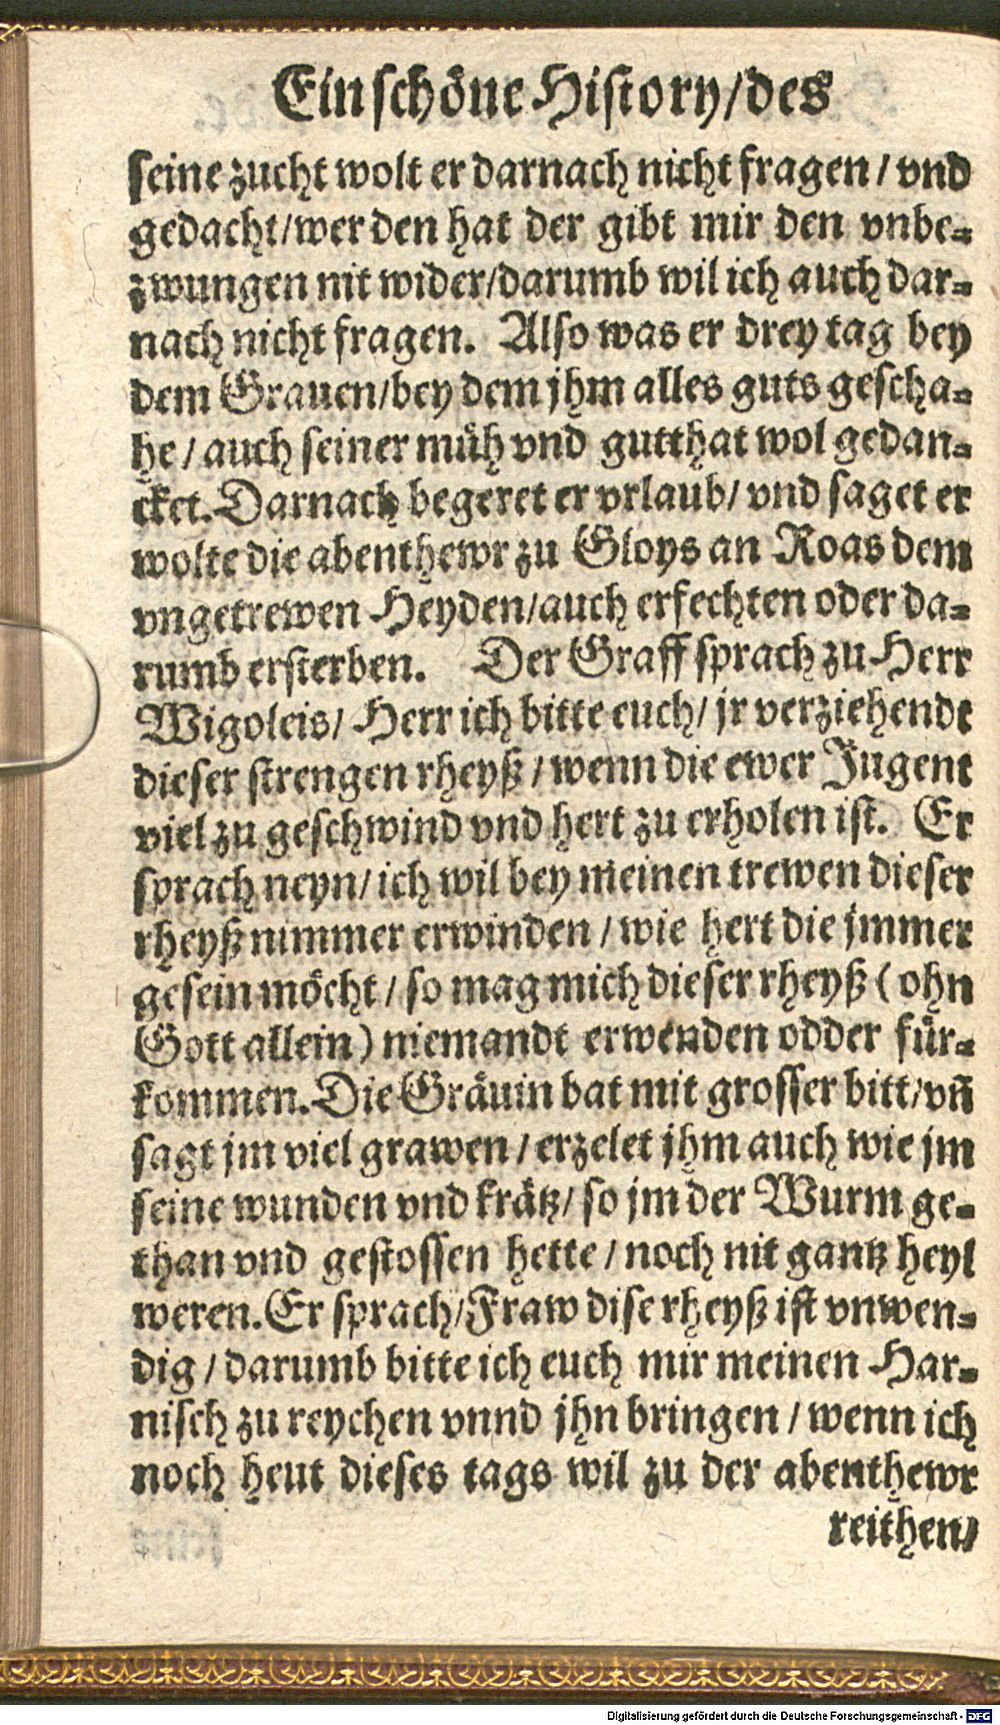 Ein schöne History/des
seine zucht wolt er darnach nicht fragen / vnd
gedacht/wer den hat der gibt mir den vnbe-
zwungen nit wider/darumb wil ich auch dar-
nach nicht fragen. Also was er drey tag bey
dem Grauen/bey dem jhm alles guts gescha-
he / auch seiner müh vnd gutthat wol gedan-
cket. Darnach begeret er vrlaub/ vnd saget er
wolte die abenthewr zu Gloys an Roas dem
vngetrewen Heyden/auch erfechten oder da-
rumb ersterben. Der Graff sprach zu Herr
Wigoleis/ Herr ich bitte euch/ jr verziehendt
dieser strengen rheyß / wenn die ewer Jugent
viel zu geschwind vnd hert zu erholen ist. Er
sprach neyn/ ich wil bey meinen trewen dieser
rheyß nimmer erwinden / wie hert die jmmer
gesein möcht / so mag mich dieser rheyß ( ohn
Gott allein ) niemandt erwenden odder für-
kommen. Die Gräuin bat mit grosser bitt/vñ
sagt jm viel grawen / erzelet jhm auch wie jm
seine wunden vnd krätz/ so jm der Wurm ge-
than vnd gestossen hette / noch nit gantz heyl
weren. Er sprach/Fraw dise rheyß ist vnwen-
dig / darumb bitte ich euch mir meinen Har-
nisch zu reychen vnnd jhn bringen / wenn ich
noch heut dieses tags wil zu der abenthewr
reithen/
Digitalisierung gefördert durch die Deutsche Forschungsgemeinschaft - DFG